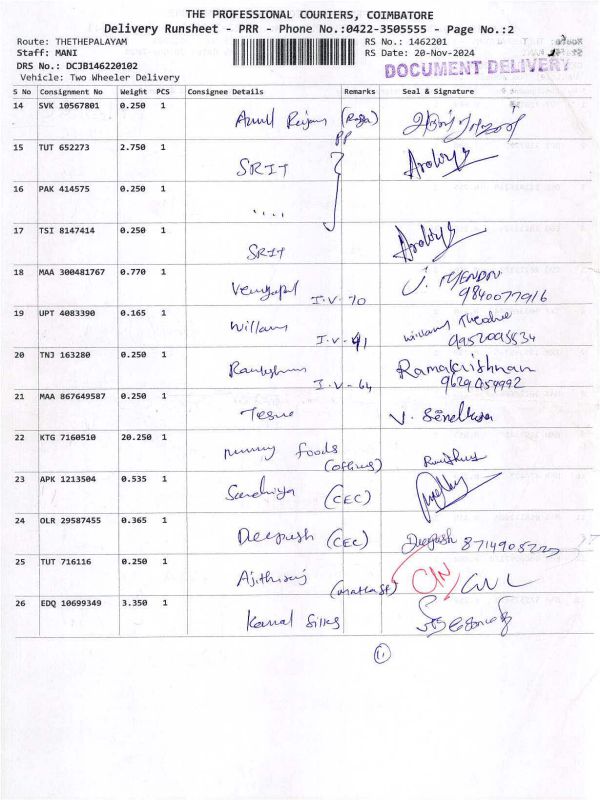 THE PROFESSIONAL COURIERS, COIMBATORE
Delivery Runsheet - PRR - Phone No.:0422-3505555 - Page No.:2
Route: THETHEPALAYAM RS No.: 1462201
Staff: MANI RS Date: 20-Nov-2024
DRS No.: DCJB146220102
DOCUMENT DELIVERY
Vehicle: Two Wheeler Delivery
S No Consignment No Weight PCS Consignee Details Remarks Seal & Signature
14 SVK 10567801 0.250 1
PP
15 TUT 652273 2.750 1
SRIT
16 PAK 414575 0.250 1
....
17 TSI 8147414 0.250 1
SRIT
18 MAA 300481767 0.770 1
Venugopal I.V-70
9840077916
19 UPT 4083390 0.165 1
Williams I.V-41 Williams
9952095534
20 TNJ 163280 0.250 1
I.V-64 Ramakrishnan
9629059992
21 MAA 867649587 0.250 1
22 KTG 7160510 20.250 1
foods
23 APK 1213504 0.535 1
Sandhiya (CEC)
24 OLR 29587455 0.365 1
Deepash (CEC) Deepash
25 TUT 716116 0.250 1
Ajithraj
26 EDQ 10699349 3.350 1
Kamal Silks
11